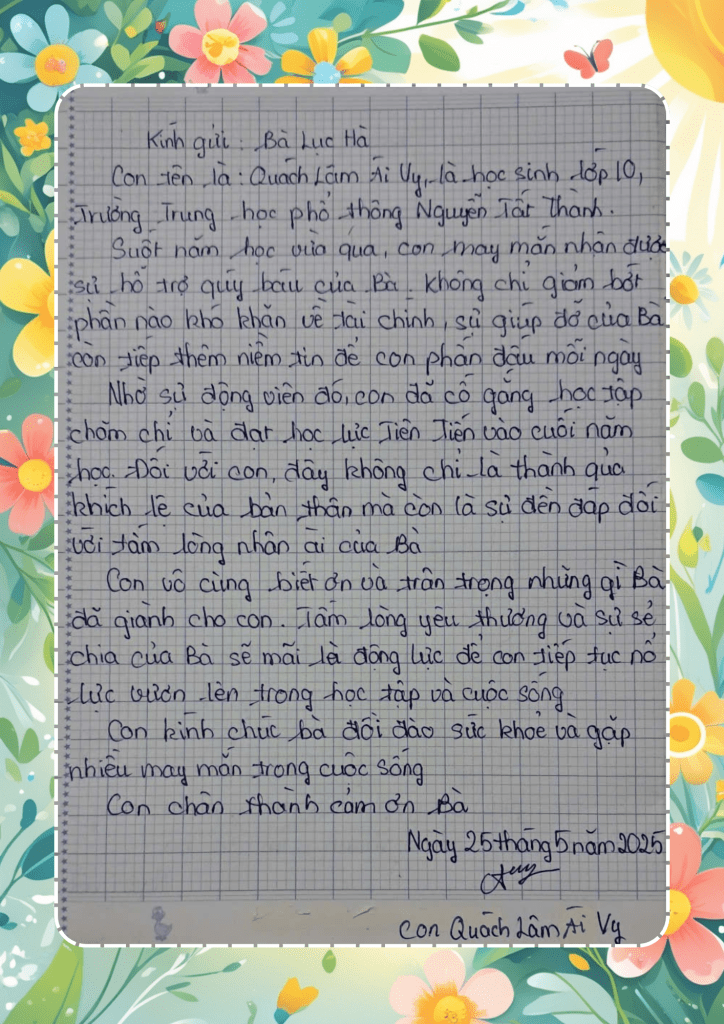 Kính gửi: Bà Lục Hà
Con tên là: Quách Lâm Ái Vy, là học sinh lớp 10,
Trường Trung học phổ thông Nguyễn Tất Thành.
Suốt năm học vừa qua, con may mắn nhận được
sự hỗ trợ quý báu của Bà. Không chỉ giảm bớt
phần nào khó khăn về tài chính, sự giúp đỡ của Bà
còn tiếp thêm niềm tin để con phấn đấu mỗi ngày
Nhờ sự động viên đó, con đã cố gắng học tập
chăm chỉ và đạt học lực Tiên Tiến vào cuối năm
học. Đối với con, đây không chỉ là thành quả
khích lệ của bản thân mà còn là sự đền đáp đối
với tấm lòng nhân ái của Bà
Con vô cùng biết ơn và trân trọng những gì Bà
đã giành cho con. Tấm lòng yêu thương và sự sẻ
chia của Bà sẽ mãi là động lực để con tiếp tục nổ
lực vươn lên trong học tập và cuộc sống
Con kính chúc bà dồi dào sức khoẻ và gặp
nhiều may mắn trong cuộc sống
Con chân thành cảm ơn Bà
Ngày 25 tháng 5 năm 2025
Con Quách Lâm Ái Vy